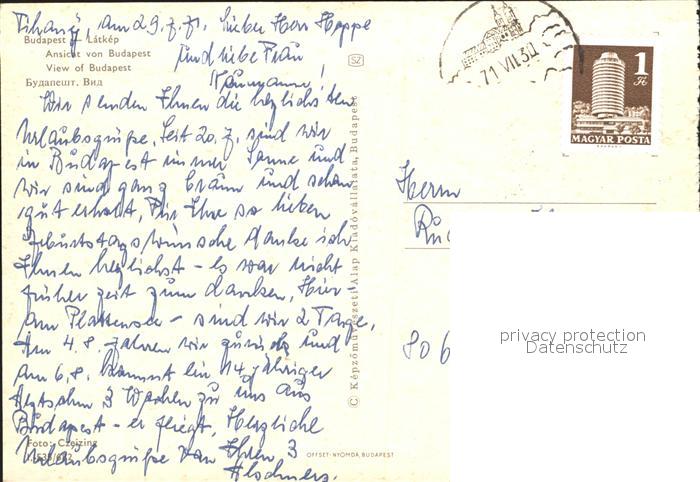 Tihany, am 29.7.71. Lieber Herr Hoppe
und liebe Frau
Budapest Látkép
Ansicht von Budapest
View of Budapest
Будапешт. Вид
Wir senden Ihnen die herzlichsten
Urlaubsgrüße. Seit 20.7. sind wir
in Budapest immer Sonne und
wir sind ganz braun und schon
gut erholt. Für Ihre so lieben
Geburtstagswünsche danke ich
Ihnen herzlichst - es war nicht
früher Zeit zum danken. Hier -
am Plattensee - sind wir 2 Tage.
Am 4.8. fahren wir zurück und
am 6.8. kommt ein 14 jähriger
3 Wochen zu uns aus
Budapest - er fliegt. Herzliche
Urlaubsgrüße von Ihren 3
Foto: Czeizing
OFFSET-NYOMDA, BUDAPEST
© Képzőművészeti Alap Kiadóvállalata, Budapest
SZ
71 VII 30
1 Ft
MAGYAR POSTA
Herrn
806
privacy protection
Datenschutz